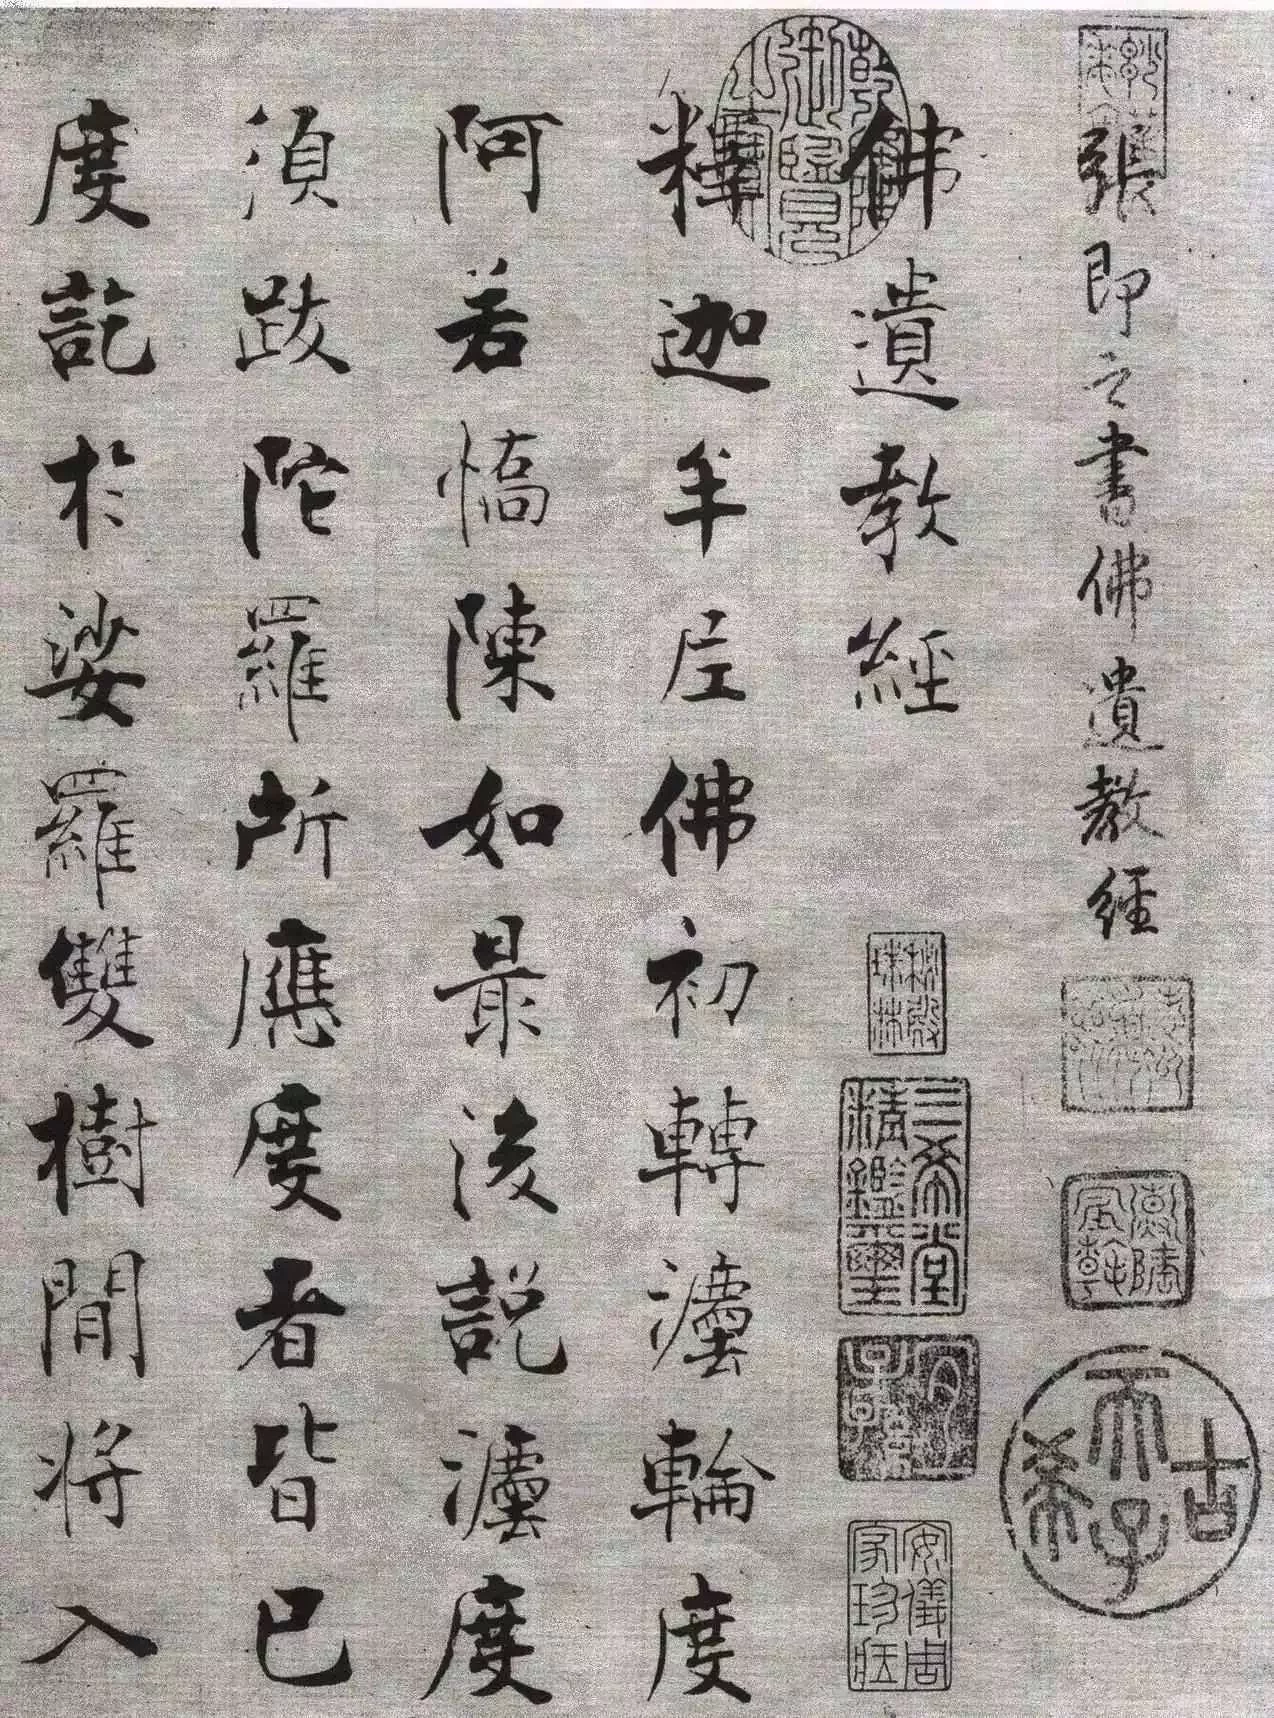 張即之書佛遺教經
佛遺教經
釋迦牟尼佛初轉灋輪度
阿若憍陳如最後説灋度
須跋陀羅所應度者皆已
度訖於娑羅雙樹間將入
乾隆御覽之寶
秘殿珠林
三希堂精鑑璽
宜子孫
安儀周家珍藏
古希天子